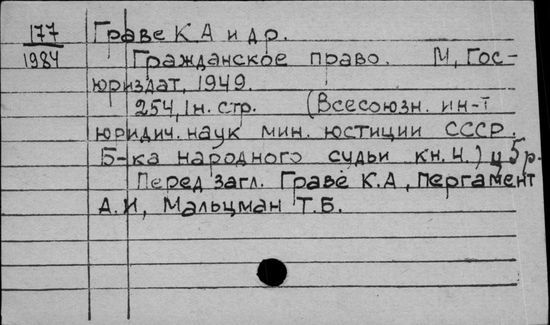 177 Граве К.А и др.
1984 Гражданское право. М, Гос-
юриздат, 1949.
254, 1 н. стр. (Всесоюзн. ин-т
юридич. наук мин. юстиции СССР.
Б-ка народного судьи кн. 4.) ц 5 р.
Перед загл. Граве К.А, Пергамент
А.И, Мальцман Т.Б.